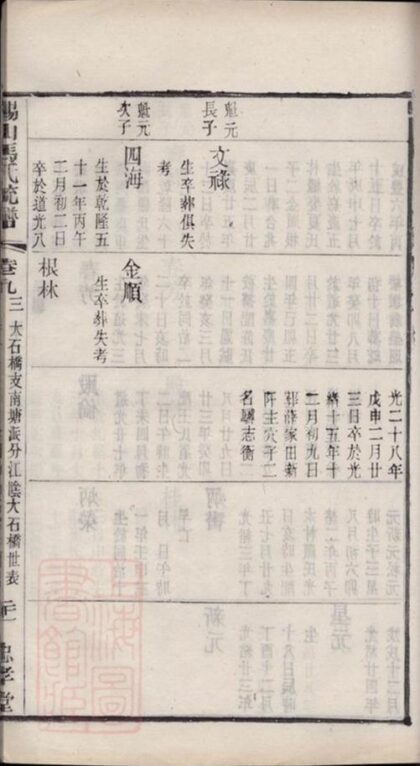 光二十八年
戊申二月廿
三日卒於光
緒十五年十
二月初九日
葬薛家田新
阡主穴子二
名驥志衡
魁元
長子
文祿
生卒葬俱失
考
魁元
次子
四海
生於乾隆五
十一年丙午
二月初二日
卒於道光八
金順
生卒葬失考
根林
錫山張氏統譜
卷九三
大石橋支南塘派分江陰大石橋世表
忠孝堂
上海圖書館藏